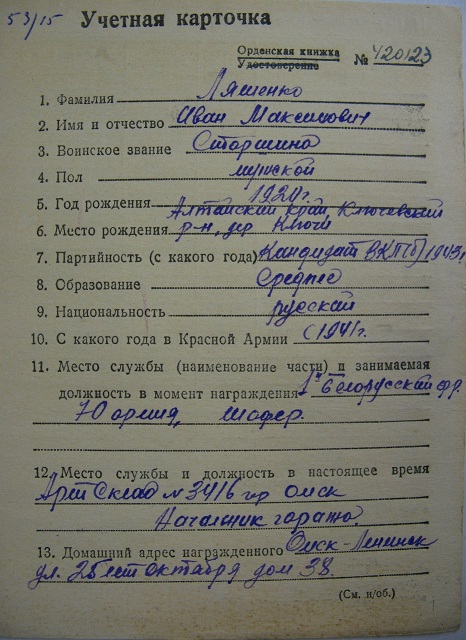 53/15 Учетная карточка
Орденская книжка
Удостоверение № 420123
1. Фамилия Ляшенко
2. Имя и отчество Иван Максимович
3. Воинское звание Старшина
4. Пол мужской
5. Год рождения 1920г.
Алтайский край, Ключевский
6. Место рождения р-н, дер Ключи
7. Партийность (с какого года) Кандидат ВКП(б) 1943г
8. Образование Среднее
9. Национальность русский
10. С какого года в Красной Армии С 1941г.
11. Место службы (наименование части) и занимаемая
должность в момент награждения 1й Белорусский фр.
70 армия, шофер.
12. Место службы и должность в настоящее время
Арт Склад № 3416 гор Омск
Начальник гаража.
13. Домашний адрес награжденного Омск-Ленинск
ул. 25 лет Октября дом 38.
(См. н/об.)